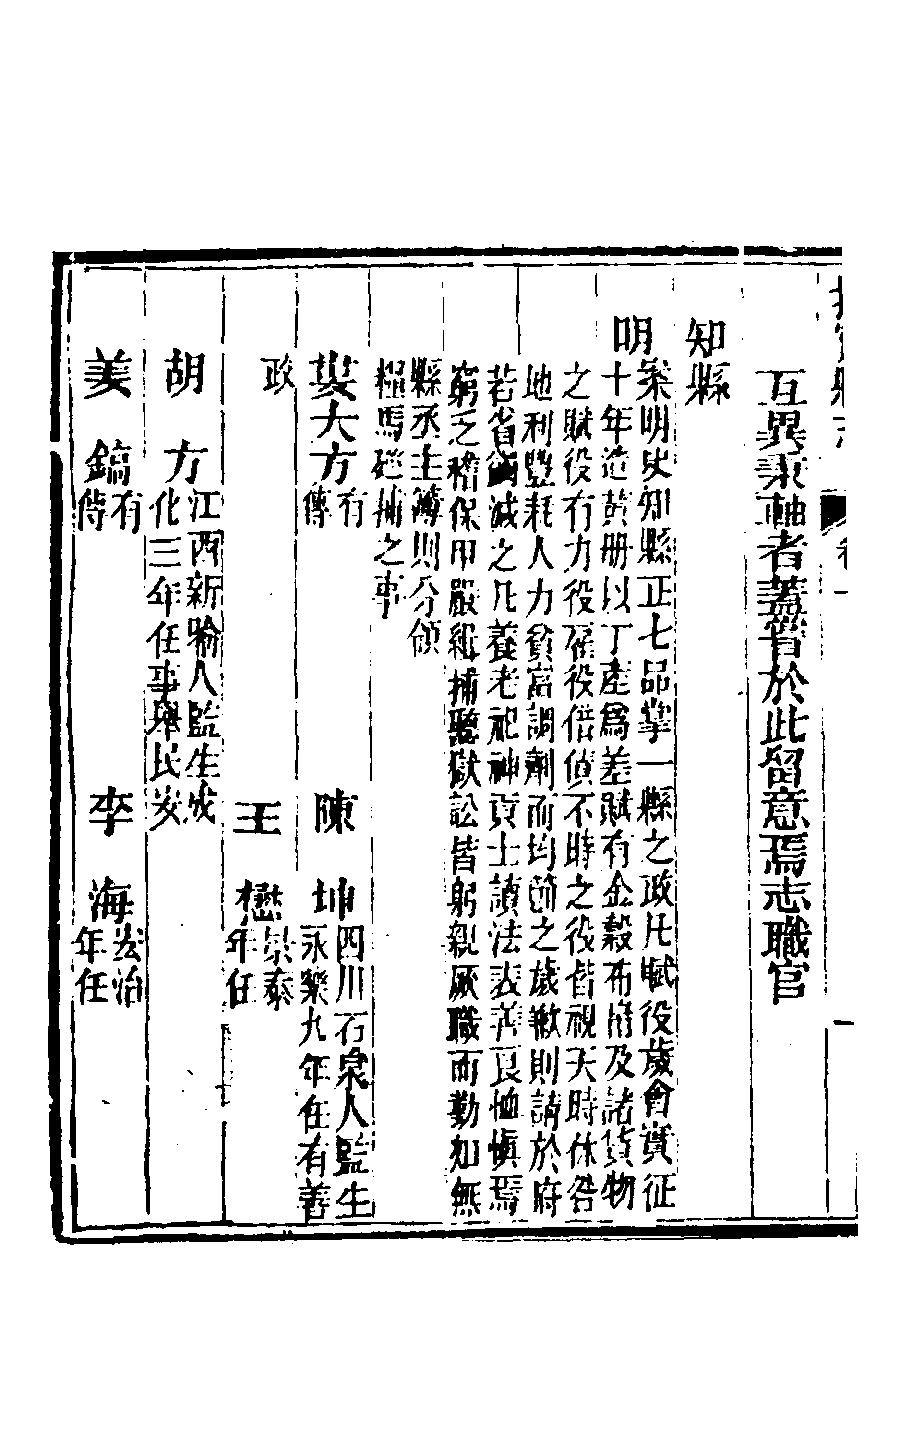 互異秉軸者蓋嘗於此留意焉志職官
知縣
明案明史知縣正七品掌一縣之政凡賦役歲會實征
十年造黃冊以丁產爲差賦有金穀布帛及諸貨物
之賦役有力役雇役借倩不時之役皆視天時休咎
地利豐耗人力貧富調劑而均節之歲歉則請於府
若省蠲減之凡養老祀神貢士讀法表善良恤愼焉
窮乏稽保甲嚴緝捕聽獄訟皆躬親厥職而勤如無
縣丞主簿則分領
糧馬巡捕之事
婁大方有傳 陳坤四川石泉人監生永樂九年任有善
政 王懋景泰年任
胡方江西新喻人監生成化三年任事舉民安
姜鎬有傳 李海弘治年任